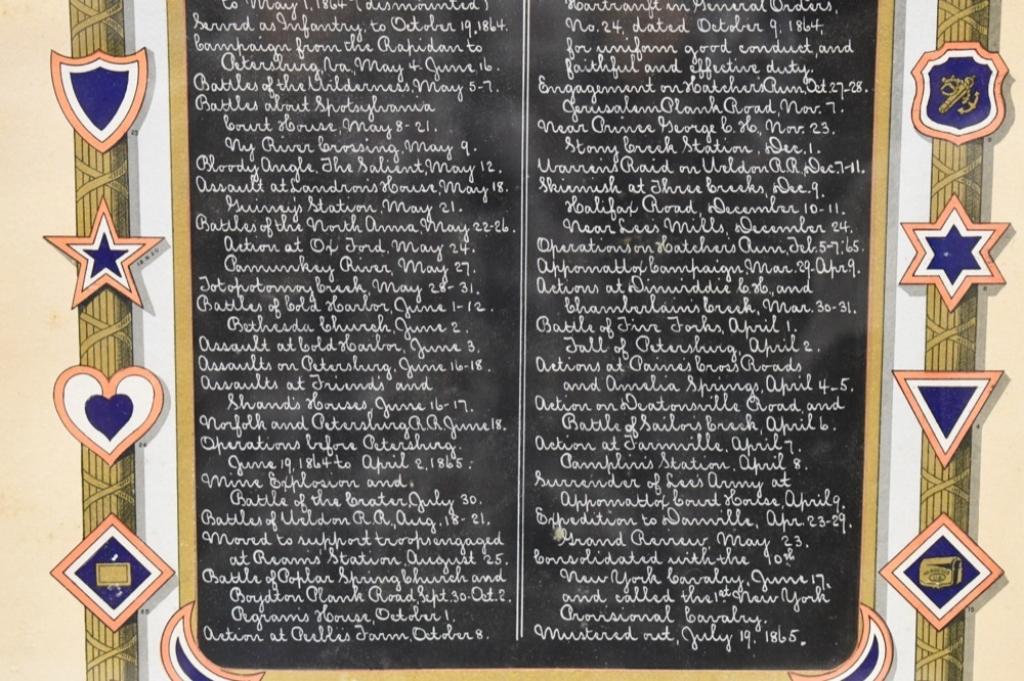 to May 1, 1864 (dismounted)
Served as infantry, to October 19, 1864.
Campaign from the Rapidan to
Petersburg, Va., May 4-June 16.
Battles of the Wilderness, May 5-7.
Battles about Spotsylvania
Court House, May 8-21.
Ny River Crossing, May 9.
Bloody Angle, The Salient, May 12.
Assault at Landron's House, May 18.
Guiney's Station, May 21.
Battles of the North Anna, May 22-26.
Action at Ox Ford, May 24.
Pamunkey River, May 27.
Totopotomoy Creek, May 28-31.
Battles of Cold Harbor, June 1-12.
Bethesda Church, June 2.
Assault at Cold Harbor, June 3.
Assaults on Petersburg, June 16-18.
Assaults at Friend's and
Shand's Houses, June 16-17.
Norfolk and Petersburg R.R. June 18.
Operations before Petersburg.
June 19, 1864 to April 2, 1865.
Mine Explosion and
Battle of the Crater, July 30.
Battles of Weldon R.R., Aug. 18-21.
Moved to support troops engaged
at Ream's Station, August 25.
Battle of Poplar Spring Church and
Boydton Plank Road, Sept. 30-Oct. 2.
Pegram's House, October 1
Action at Pell's Farm, October 8.
Hartranft in General Orders,
No. 24, dated October 9, 1864,
for uniform good conduct, and
faithful and effective duty.
Engagement on Hatcher's Run, Oct. 27-28.
Jerusalem Plank Road, Nov. 7.
Near Prince George C.H., Nov. 23.
Stony Creek Station, Dec. 1.
Warren's Raid on Weldon R.R., Dec. 7-11.
Skirmish at Three Creeks, Dec. 9.
Halifax Road, December 10-11.
Near Lee's Mills, December 24.
Operations on Hatcher's Run, Feb. 5-7, '65.
Appomattox Campaign, Mar. 29-Apr. 9.
Actions at Dinwiddie C.H., and
Chamberlain's Creek, Mar. 30-31.
Battle of Five Forks, April 1.
Fall of Petersburg, April 2.
Actions at Paine's Cross Roads
and Amelia Springs, April 4-5.
Action on Deatonsville Road, and
Battle of Sailor's Creek, April 6.
Action at Farmville, April 7.
Pamplin's Station, April 8.
Surrender of Lee's Army at
Appomattox Court House, April 9.
Expedition to Danville, Apr. 23-29.
Grand Review, May 23.
Consolidated with the 10th
New York Cavalry, June 17.
and called the 1st New York
Provisional Cavalry.
Mustered out, July 19, 1865.